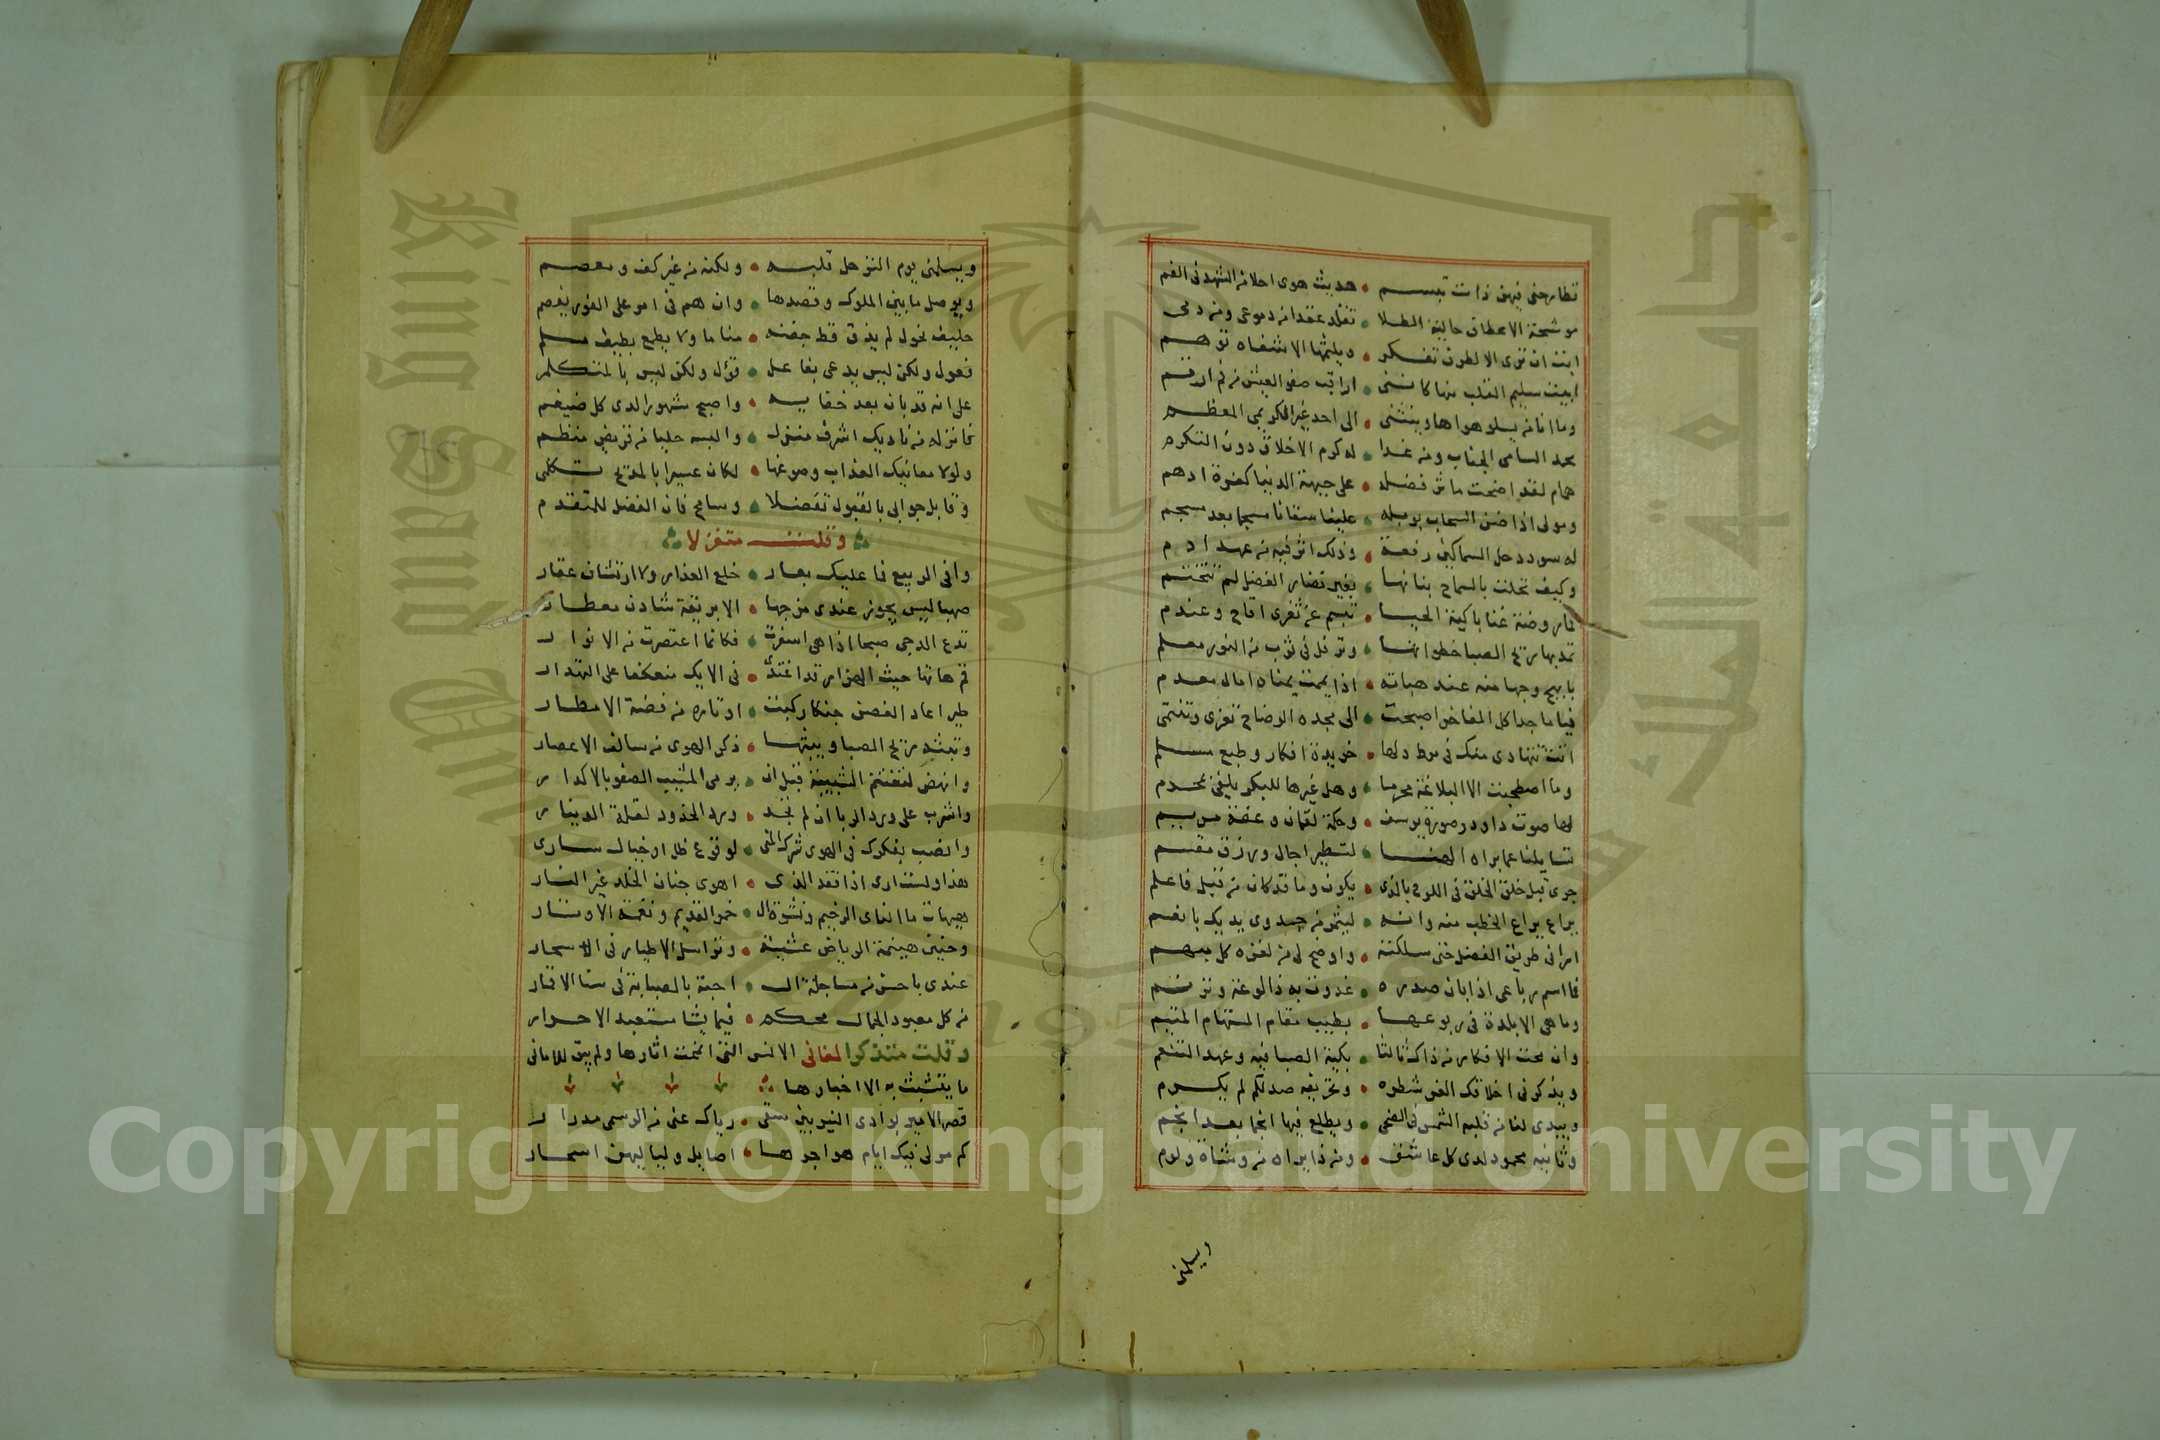 تطارحني فيهن ذات تبسم • حديث هوى احلا من الشهد في الفم
موشحة الاعطاف حالية الطلا • تقلد عقدا من دموعي ومن دمى
ابت ان ترى الا لطرف تفكر • ويلثمها الا شفاه توهم
ابيت سليم القلب منها كاننى • اراقب صفو العيش من فم ارقم
وما انا من يسلو هواها وينثنى • الى احد غير الكريم المعظم
محمد السامى الجناب ومن غدا • له كرم الاخلاق دون التكرم
همام لقد اضحت مآثر فضله • على جبهة الدنيا كغرة ادهم
ومولى اذا ضن السحاب بوبله • علينا سقانا مسجما بعد مسجم
له سودد حل السماكين رفعة • وذلك اثر فيه من عهد ادم
وكيف تحلت بالسماح بنانها • بغير نضار الفضل لم تتختم
فما روضة غنا باكية الحيا • تبسم عن ثغرى اقاح وعندم
تمد بها ريح الصبا خطواتها • وترفل في ثوب من النور معلم
بابهج وجها منه عند هباته • اذا يممت يمناه امال معدم
فيا ماجدا كل المفاخر اصبحت • الى مجده الوضاح تعزى وتنتمى
اتت تتهادى منك في مرط دلها • خريدة افكار وطبع مسلم
وما اصطحبت الا البلاغة محرما • وهل غيرها للبكر يلفى بمحرم
لها صوت داود وصورة يوسف • وحكمة لقمان وعفة مريم
تسايلنا عما يراه الهنا • لتسطير اجال ورزق مقسم
جرى قبل خلق الخلق في اللوح بالذى • يكون وما قد كان من قبل فاعلم
يراع يراع الخطب منه وانه • ليثمر من جدوى يديك بانعم
ارانى طريق الفضل حتى سلكته • واوضح لى من لغزه كل مبهم
فما اسم رباعى اذا بان صدره • غدوت به ذا لوعة وترنم
وما هى الا بلدة في ربوعها • يطيب مقام المستهام المتيم
وان محت الافكار من ذاك ثالثا • بكيت الصبا فيه وعهد التنعم
ويذكرنى اخلاقك الغر شطره • وتحريفه صدلكم لم يكرم
ويبدى لنا من قلبه الشمس في الضحى • ويطلع فيها انجما بعد انجم
وثانيه محمود لدى كل عاشق • ومن ذا يراه من وشاة ولوم
ويسلمنى
ويسلمنى يوم النزحل قلبه • ولكنه من غير كف ومعصم
ويوصل ما بين الملوك وقصدها • وان هم في امر على الفور يفصم
حليف نحول لم يذق قط جفنه • مناما ولا يطمع بطيف مسلم
فعول ولكن ليس يدعى بفاعل • قؤل ولكن ليس بالمتكلم
على انه قد بان بعد خفايه • واصبح مشهورا لدى كل ضيغم
فانزله من ناديك اشرف منزل • والبسه حليا من قريض منظم
ولولا معانيك العذاب وصوغها • لكان عسيرا بالمديح تكلمى
وقابل جوابى بالقبول تفضلا • وسامح فان الفضل للمتقدم
وقلت متغزلا
وافى الربيع فما عليك بعار • خلع العذار ولا ارتشاف عقار
صهبا ليس يجوز عندى مزجها • الا بريقة شادن معطار
تدع الدجى صبحا اذا هى اسفرت • فكانما اعتصرت من الانوار
قم هاتها حيث الهزار قد اغتدى • في الايك منعكفا على التهدار
طير اعاد الغصن جنكا ركبت • اوتاره من فضة الامطار
وتعيد ريح الصبا ويبثها • ذكر الهوى من سالف الاعصار
وانهض لتغتنم الشبيبة قبل ان • يرمى المشيب الصفو بالاكدار
واشرب على ورد الربا ان لم تجد • ورد الخدود لقلة الدينار
وانصب بفكرك في الهوى شرك المنى • لوقوع ظل او خيال سارى
هذا ولست ارى اذا فقد الذى • اهوى جنان الخلد غير النار
هيهات ما الناى الرخيم ونشوة ال • خمر القديم ونغمة الاوتار
وحنين هينمة الرياض عشية • وتراسل الاطيار في الاسحار
عندى باحسن من مساجلة ال • احبة بالصبابة في سنا الاقمار
من كل معبود الجمال محكم • فيما يشا مستعبد الاحرار
وقلت متذكرا لمغانى الانس التى انمحت اثارها ولم يبق للامانى
ما يتشبث به الا اخبارها
قصر الامير بوادى النيربين سقى • رباك عنى من الوسمى مدرار
كم مر لى فيك ايام هواجرها • اصايل ولياليهن اسحار
Copyright © King Saud University